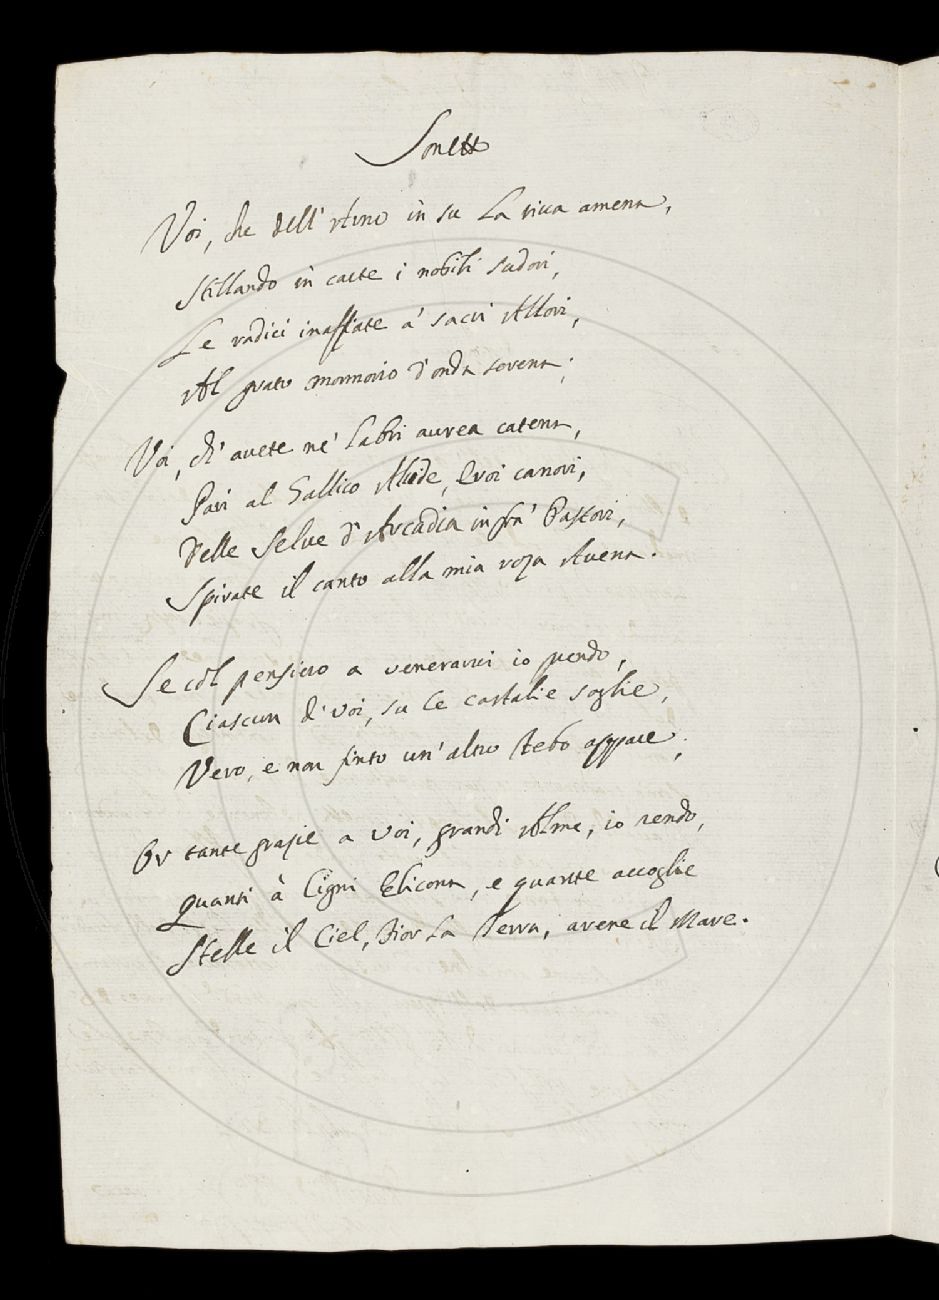 Sonetto
Voi, che dell' Arno in su La riva amena,
Stillando in carte i nobili sudori,
Le radici inaffiate a' sacri Allori,
Al grato mormorio d'onda serena;
Voi, ch' avete ne' Labri aurea catena,
Pari al Gallico Alcide, Eroi canori,
Delle Selve d'Arcadia infra' Pastori,
Spirate il canto alla mia roza Avena.
Se col pensiero a venerarvi io prendo,
Ciascun di voi, su le castalie soglie,
Vero, e non finto un' altro Febo appare;
Or tante grazie a voi, grandi Alme, io rendo,
quanti à Cigni Elicona, e quante accoglie
Stelle il Ciel, Fior La Terra, arene il Mare.